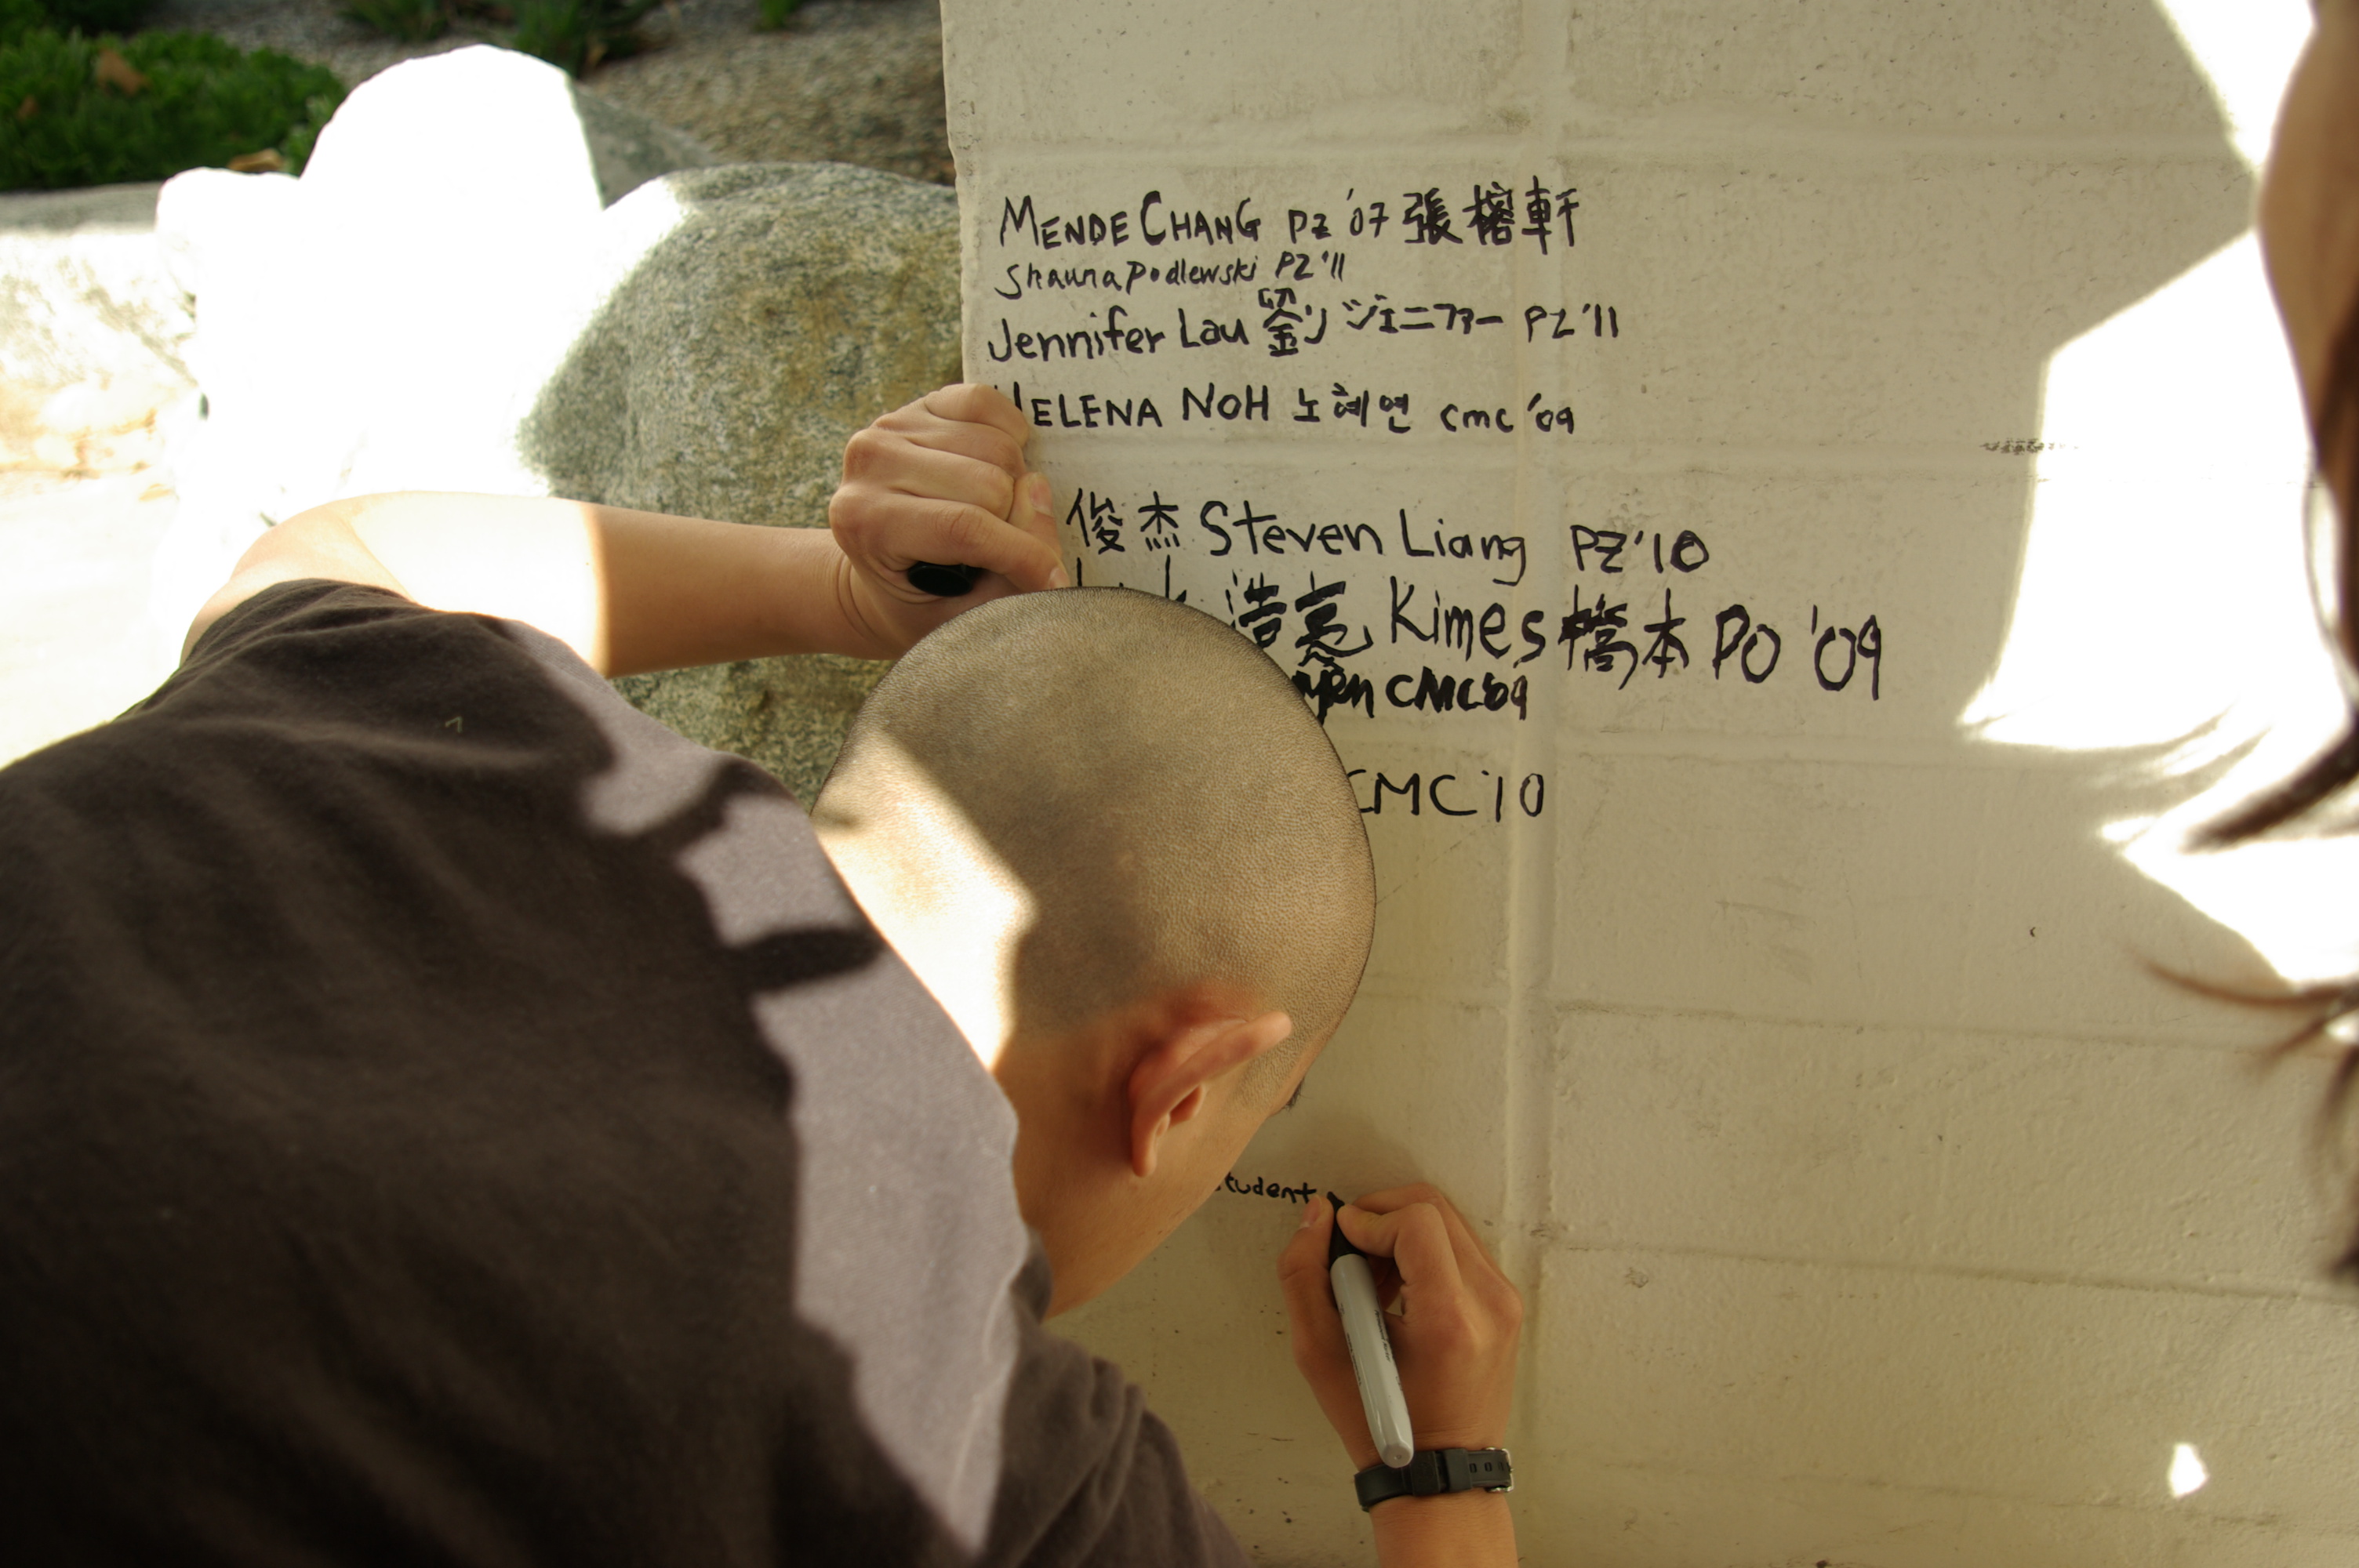 MENDE CHANG PZ '07 張榕軒
Shauna Podlewski PZ '11
Jennifer Lau 劉 ジェニファー PZ '11
HELENA NOH 노혜연 CMC '09
俊杰 Steven Liang PZ '10
浩亮 Kimes 橋本 PO '09
CMC '09
CMC '10
student